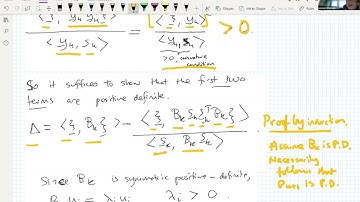 < ξ, y_k > < ξ, y_k > / < y_k, s_k > = [< ξ, y_k >]² / < y_k, s_k > > 0.
> 0, curvature
condition
So it suffices to show that the first two
terms are positive definite.
Δ = < ξ, B_k ξ > - < ξ, B_k s_k s_k^T B_k ξ > / < s_k, B_k s_k > .
Proof by induction.
Assume B_k is P.D.
Necessarily
follows that
B_{k+1} is P.D.
Since B_k is symmetric positive-definite,
B_k u_i = λ_i u_i λ_i > 0